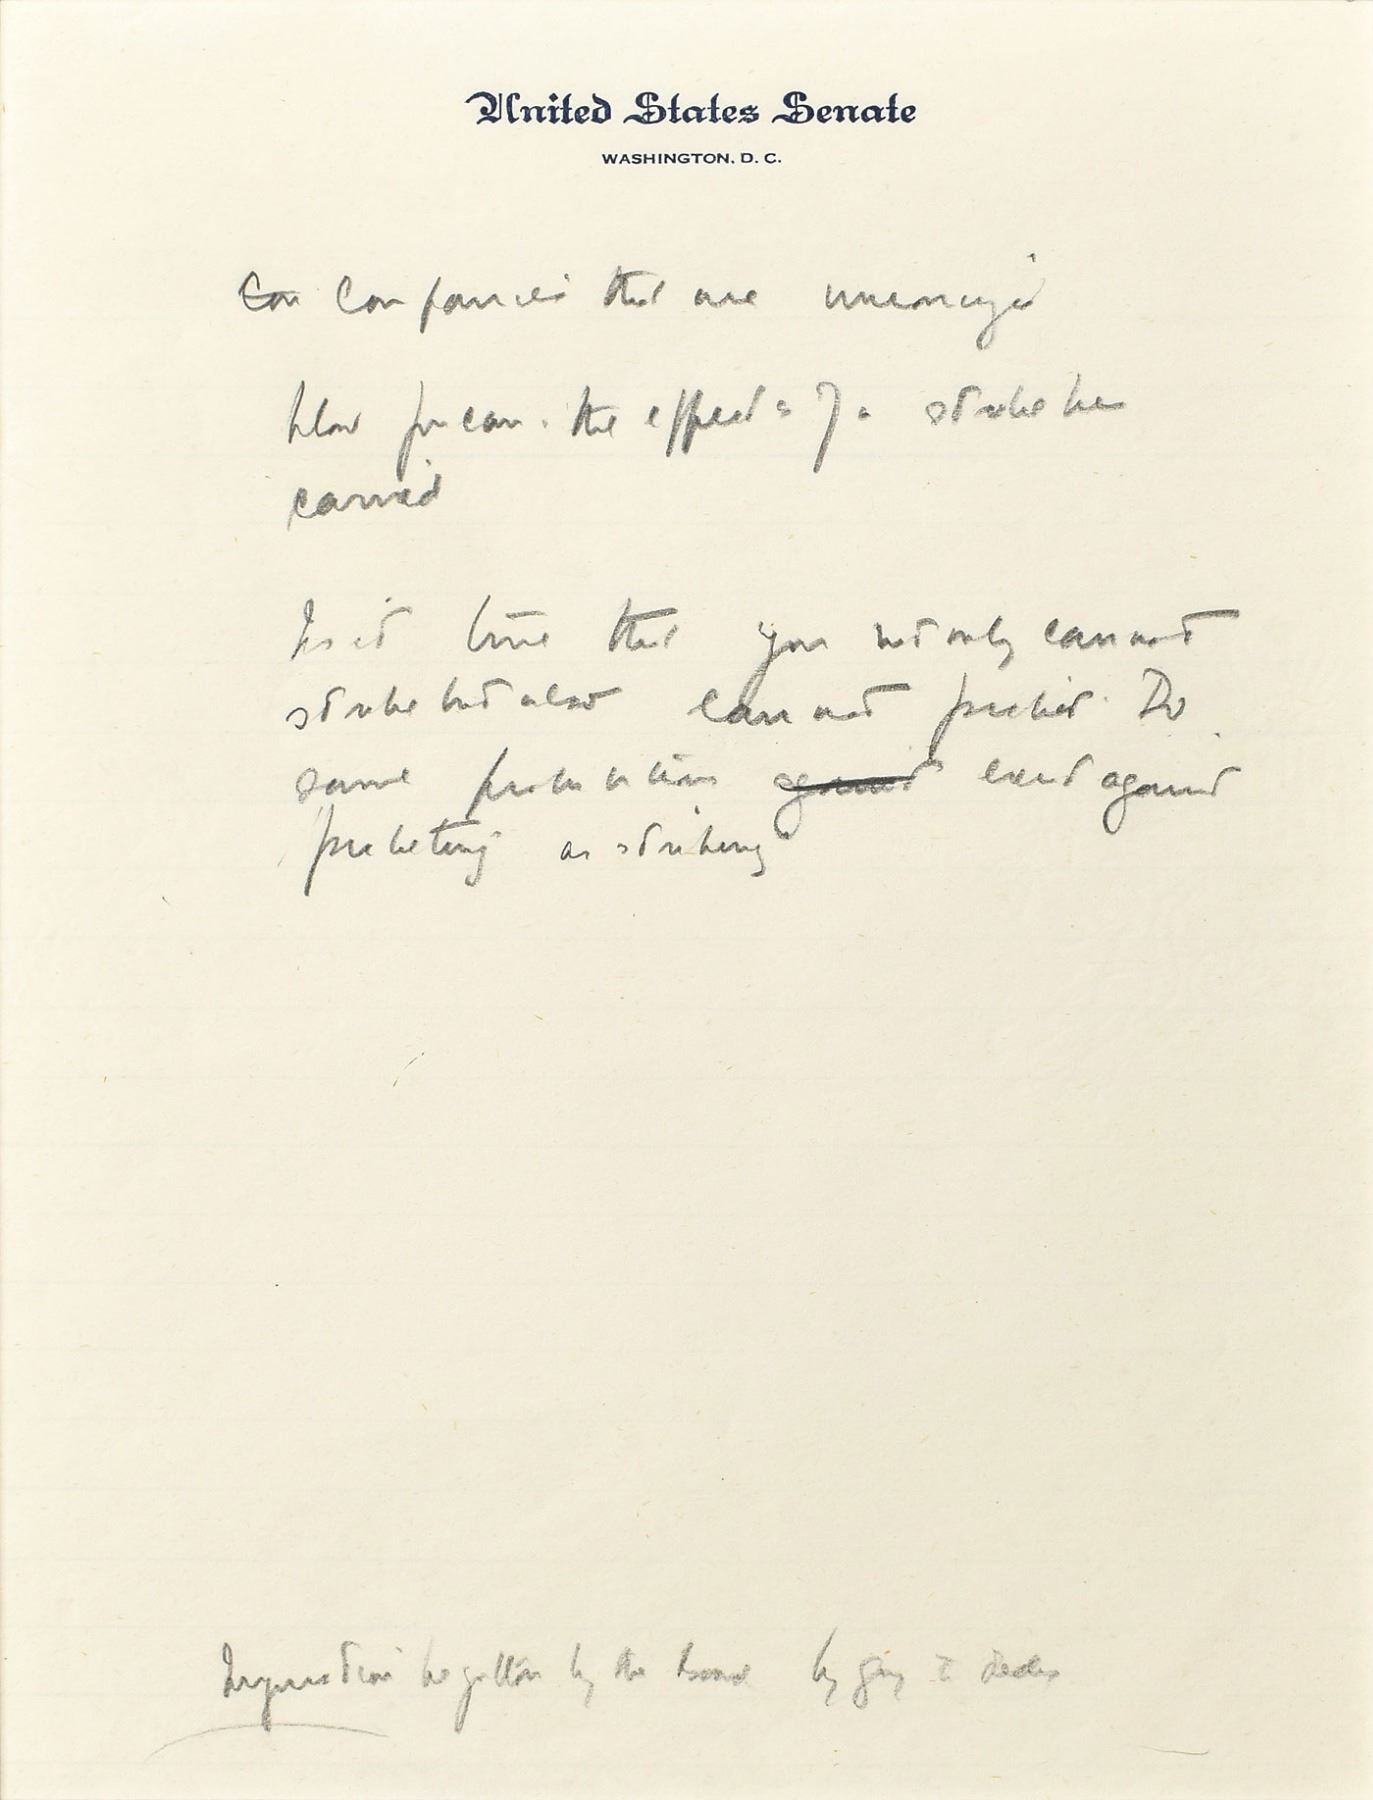 United States Senate
WASHINGTON, D. C.
Con Companies that are
How you can. the effect of a strike be
carried
Is it true that you not only cannot
strike but also cannot picket. Do
same prohibitions against exist against
picketing as striking
Injunction be gotten by the Board by going to